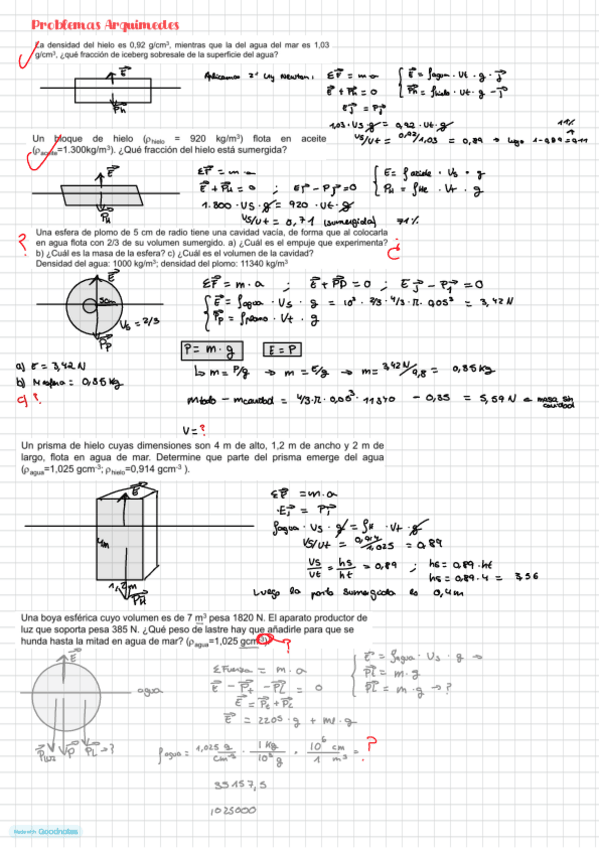 Problemas Arquímedes
La densidad del hielo es 0,92 g/cm³, mientras que la del agua del mar es 1,03
g/cm³, ¿qué fracción de iceberg sobresale de la superficie del agua?
Aplicamos 2ª Ley Newton:
ΣF = m·a
E + Ph = 0
Ej = Pj
E = ρagua · Vt · g · j
Ph = ρhielo · Vt · g · -j
1,03 · Vs · g = 0,92 · Vt · g
Vs/Vt = 0,92/1,03 = 0,89 → luego 1-0,89 = 0,11
11%
E
Ph
Un bloque de hielo (ρhielo = 920 kg/m³) flota en aceite
(ρaceite=1.300kg/m³). ¿Qué fracción del hielo está sumergida?
ΣF = m·a
E + PH = 0 ; Ej - Pj = 0
E = ρaceite · Vs · g
PH = ρHe · Vt · g
1.300 · Vs · g = 920 · Vt · g
Vs/Vt = 0,71 (sumergida) 71%
E
PH
Una esfera de plomo de 5 cm de radio tiene una cavidad vacía, de forma que al colocarla
en agua flota con 2/3 de su volumen sumergido. a) ¿Cuál es el empuje que experimenta?
b) ¿Cuál es la masa de la esfera? c) ¿Cuál es el volumen de la cavidad?
Densidad del agua: 1000 kg/m³; densidad del plomo: 11340 kg/m³
?
¿
E
5cm
Pp
Vs = 2/3
ΣF = m·a ; E + PP = 0 ; Ej - Pj = 0
E = ρagua · Vs · g = 10³ · 2/3 · 4/3 · π · 0,05³ = 3,42 N
Pp = ρplomo · Vt · g
P = m · g
E = P
a) E = 3,42 N
↳ m = P/g → m = E/g → m = 3,42N/9,8 = 0,35 kg
b) Mesfera = 0,35 kg
c) ?
Mtodo - mcavidad = 4/3·π·0,05³ · 11340 - 0,35 = 5,59 N = masa sin
cavidad
V = ?
Un prisma de hielo cuyas dimensiones son 4 m de alto, 1,2 m de ancho y 2 m de
largo, flota en agua de mar. Determine que parte del prisma emerge del agua
(ρagua=1,025 gcm⁻³; ρhielo=0,914 gcm⁻³ ).
E
4m
1,2 m
PH
ΣF = m·a
Ej = Pj
ρagua · Vs · g = ρH · Vt · g
Vs/Vt = 0,914/1,025 = 0,89
Vs/Vt = hs/ht = 0,89 ; hs = 0,89 · ht
hs = 0,89 · 4 = 3,56
Luego la parte sumergida es 0,4m
Una boya esférica cuyo volumen es de 7 m³ pesa 1820 N. El aparato productor de
luz que soporta pesa 385 N. ¿Qué peso de lastre hay que añadirle para que se
hunda hasta la mitad en agua de mar? (ρagua=1,025 gcm⁻³)
?
E
agua
Pluz
P
PL → ?
ΣFuerza = m · a
E - Pt - PL = 0
E = Pt + PL
E = 2205 · g + ml · g
E = ρagua · Vs · g →
Pt = m·g
PL = m·g → ?
ρagua = 1,025 g/cm⁻³ · 1 Kg/10³ g · 10⁶ cm/1 m³ = ?
35157,5
1025000
Made with Goodnotes